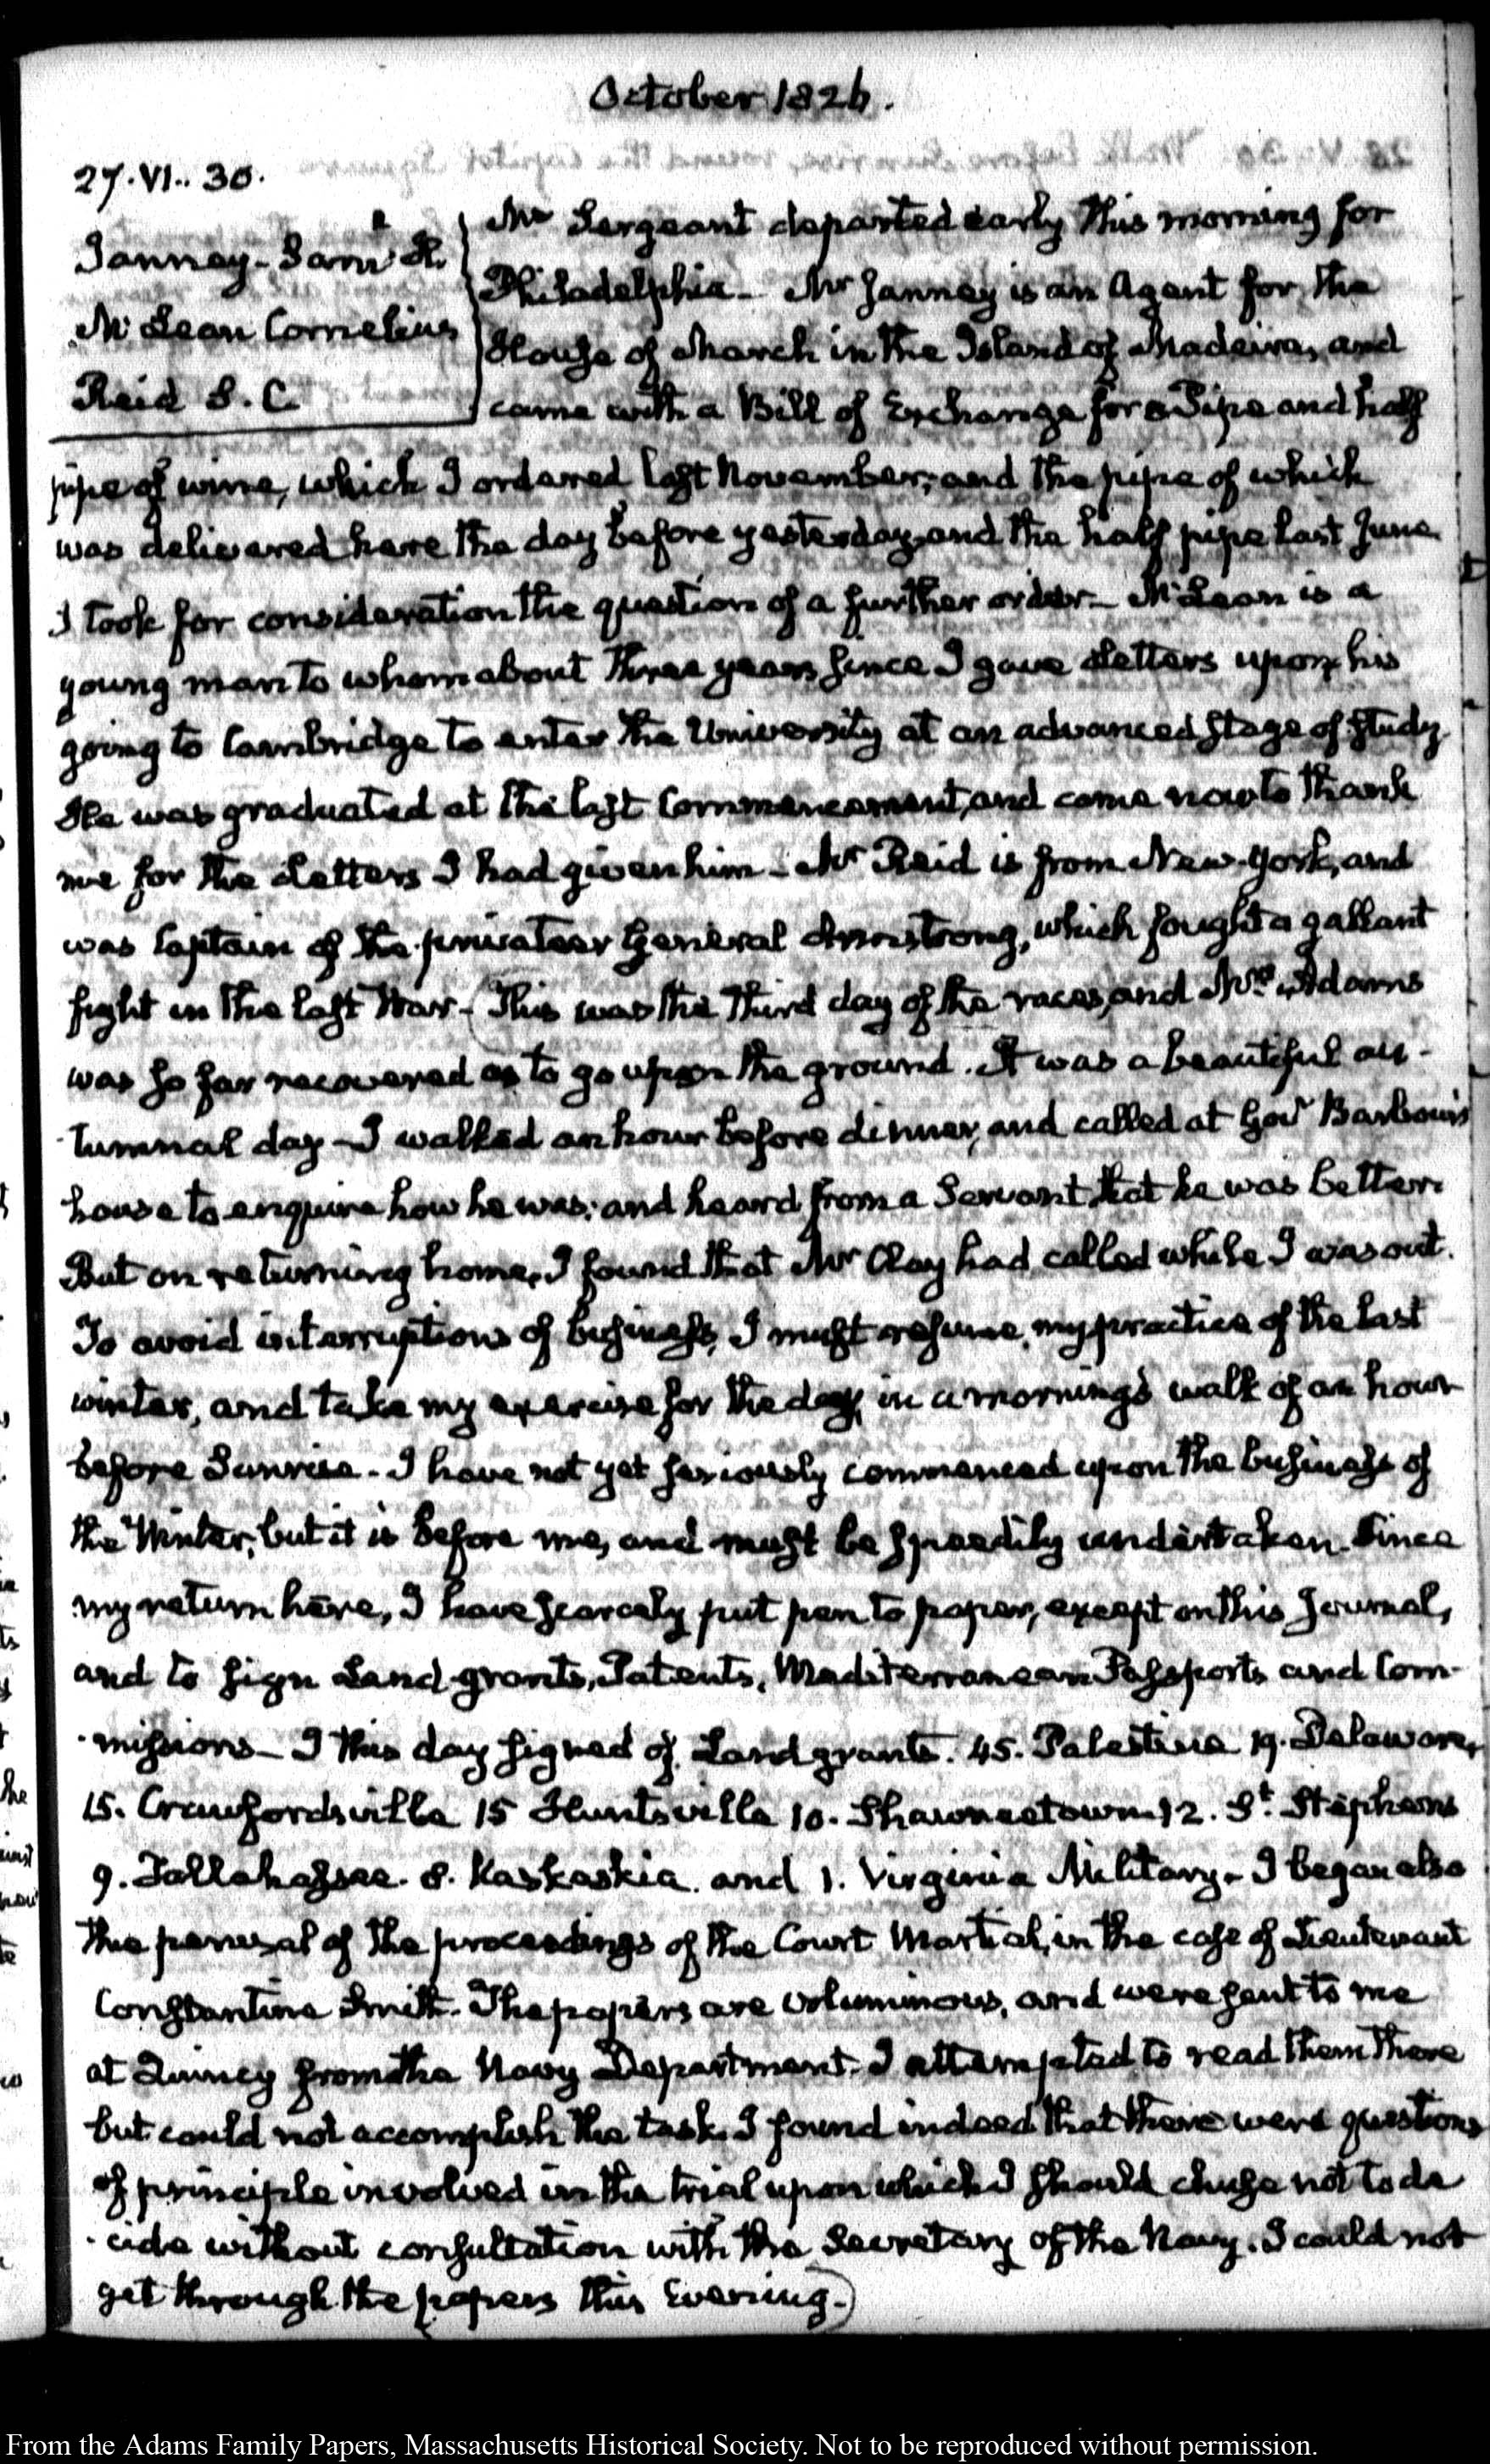 October 1826.
27. VI.. 30.
Janney - Saml H.
McLean Cornelius
Reid S. C.
Mr Sergeant departed early this morning for
Philadelphia - Mr Janney is an Agent for the
House of March in the Island of Madeira, and
came with a Bill of Exchange for a Pipe and half
pipe of wine, which I ordered last November; and the pipe of which
was delivered here the day before yesterday, and the half pipe last June
I took for consideration the question of a further order - McLean is a
young man to whom about three years since I gave Letters upon his
going to Cambridge to enter the University at an advanced stage of study.
He was graduated at the last Commencement, and came now to thank
me for the Letters I had given him - Mr Reid is from New-York, and
was Captain of the privateer General Armstrong, which fought a gallant
fight in the last War - (This was the third day of the races, and Mrs Adams
was so far recovered as to go upon the ground. It was a beautiful au-
-tumnal day - I walked an hour before dinner, and called at Govr Barbour's
house to enquire how he was; and heard from a Servant that he was better.
But on returning home, I found that Mr Clay had called while I was out.
To avoid interruptions of business, I must resume, my practice of the last
winter, and take my exercise for the day, in a morning's walk of an hour
before Sunrise - I have not yet seriously commenced upon the business of
the Winter; but it is before me, and must be speedily undertaken. Since
my return here, I have scarcely put pen to paper, except on this Journal,
and to sign Land grants, Patents, Mediterranean Passports and Com-
-missions - I this day signed of Land grants. 45. Palestine 19. Delaware,
15. Crawfordsville 15 Huntsville 10. Shawneetown 12. St. Stephens
9. Tallahassee. 8. Kaskaskia. and 1. Virginia Military - I began also
the perusal of the proceedings of the Court Martial, in the case of Lieutenant
Constantine Smith. The papers are voluminous, and were sent to me
at Quincy from the Navy Department. I attempted to read them there
but could not accomplish the task. I found indeed that there were questions
of principle involved in the trial upon which I should chuse not to de
-cide without consultation with the Secretary of the Navy. I could not
get through the papers this Evening.)
From the Adams Family Papers, Massachusetts Historical Society. Not to be reproduced without permission.